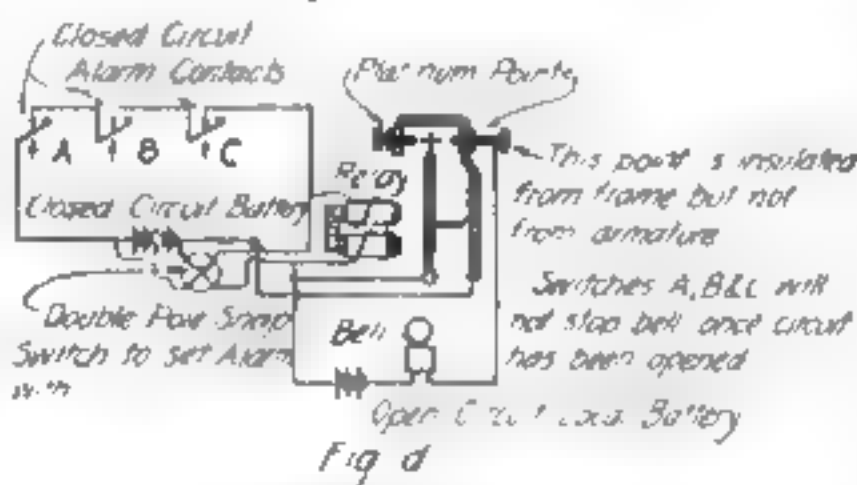 Closed Circuit
Alarm Contacts
Platinum Points
A B C
Relay
This point is insulated
from frame but not
from armature
Closed Circuit Battery
Switches A, B & C will
not stop bell once circuit
has been opened
Double Pole Snap
Switch to set Alarm
with
Bell
Open Circuit Local Battery
Fig d